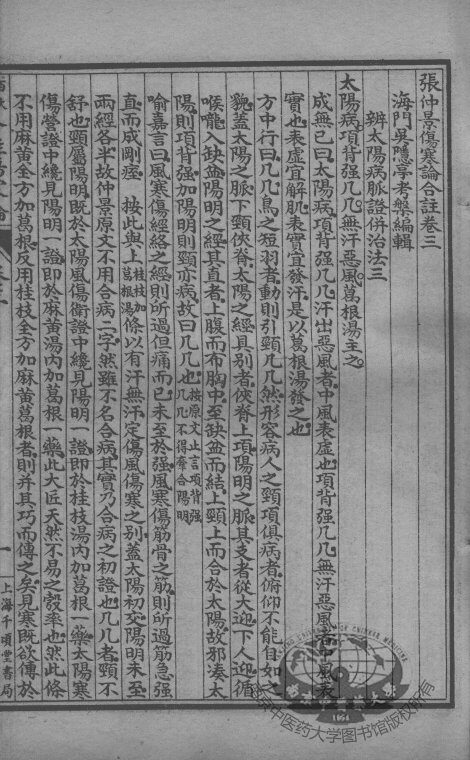 張仲景傷寒論合註卷三
海門吳隱亭考槃編輯
辨太陽病脈證併治法三
太陽病項背强几几無汗惡風葛根湯主之
成無己曰太陽病項背强几几汗出惡風者中風表虛也項背强几几無汗惡風者中風表
實也表虛宜解肌表實宜發汗是以葛根湯發之也
方中行曰几几鳥之短羽者動則引頸几几然形容病人之頸項俱病者俯仰不能自如之
貌蓋太陽之脈下頸俠脊太陽之經其別者俠脊上項陽明之脈其支者從大迎下人迎循
喉嚨入缺盆陽明之經其直者上腹而布胸中至缺盆而結上頸上而合於太陽故邪湊太
陽則項背强加陽明則頸亦病故曰几几也按原文止言項背强几几不得牽合陽明
喻嘉言曰風寒傷經絡之經則所過但痛而已未至於强風寒傷筋骨之筋則所過筋急强
直而成剛痙 按此與上桂枝加葛根湯條以有汗無汗定傷風傷寒之別蓋太陽初交陽明未至
兩經各半故仲景原文不用合病二字然雖不名合病其實乃合病之初證也几几者頸不
舒也頸屬陽明既於太陽風傷衛證中纔見陽明一證即於桂枝湯內加葛根一藥太陽寒
傷營證中纔見陽明一證即於麻黃湯內加葛根一藥此大匠天然不易之彀率也然此條
不用麻黃全方加葛根反用桂枝全方加麻黃葛根者則并其巧而傳之矣見寒既欲傳於
一
上海千頃堂書局
1956
北京中医药大学图书馆版权所有